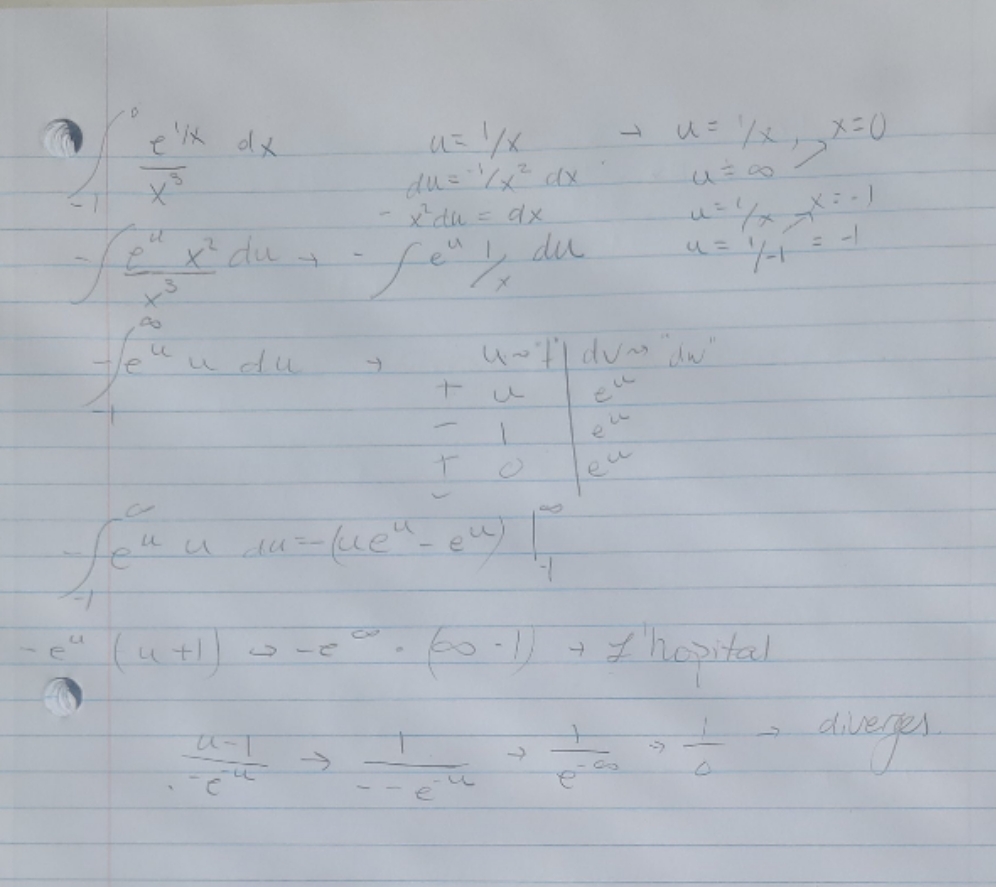 ∫_{-1}^{0} e^{1/x}/x^3 dx    u = 1/x    → u = 1/x, x=0
du = -1/x^2 dx    u = ∞
- x^2 du = dx    u = 1/x → x = -1
-∫ e^u x^2/x^3 du → -∫ e^u 1/x du    u = 1/-1 = -1
-∫_{-1}^{∞} e^u u du →    u ~ "f" | dv ~ "dw"
+ u | e^u
- 1 | e^u
+ 0 | e^u
-
-∫_{-1}^{∞} e^u u du = -(ue^u - e^u) |_{-1}^{∞}
-e^u (u+1) → -e^∞ · (∞ - 1) → L'hopital
u-1/-e^{-u} → 1/--e^{-u} → 1/e^{-∞} → 1/0 → diverges.